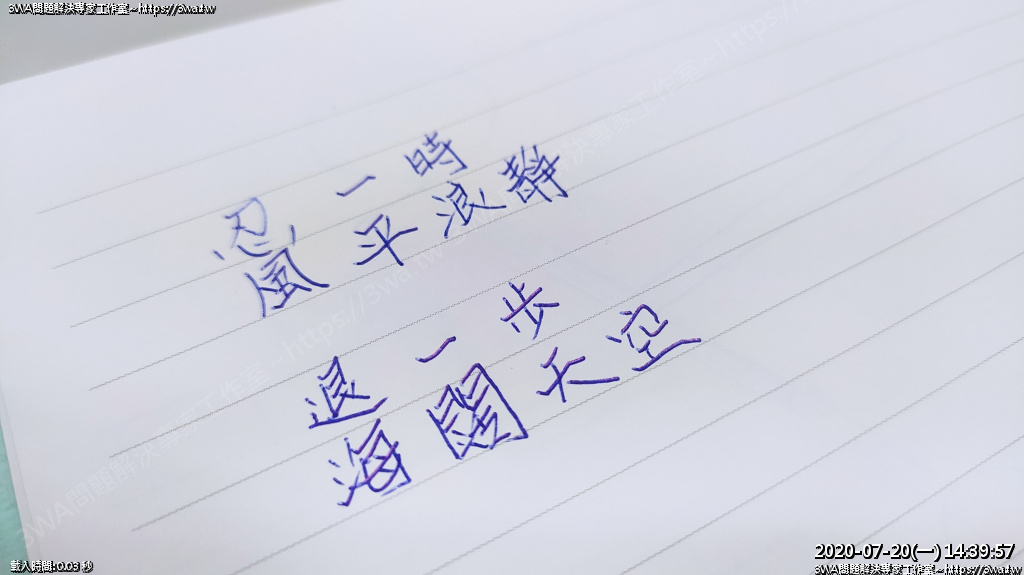 3WA問題解決專家工作室~https://3wa.tw
忍一時
風平浪靜
退一步
海闊天空
3WA問題解決專家工作室~https://3wa.tw
載入時間:0.03 秒
2020-07-20(一) 14:39:57
3WA問題解決專家工作室~https://3wa.tw